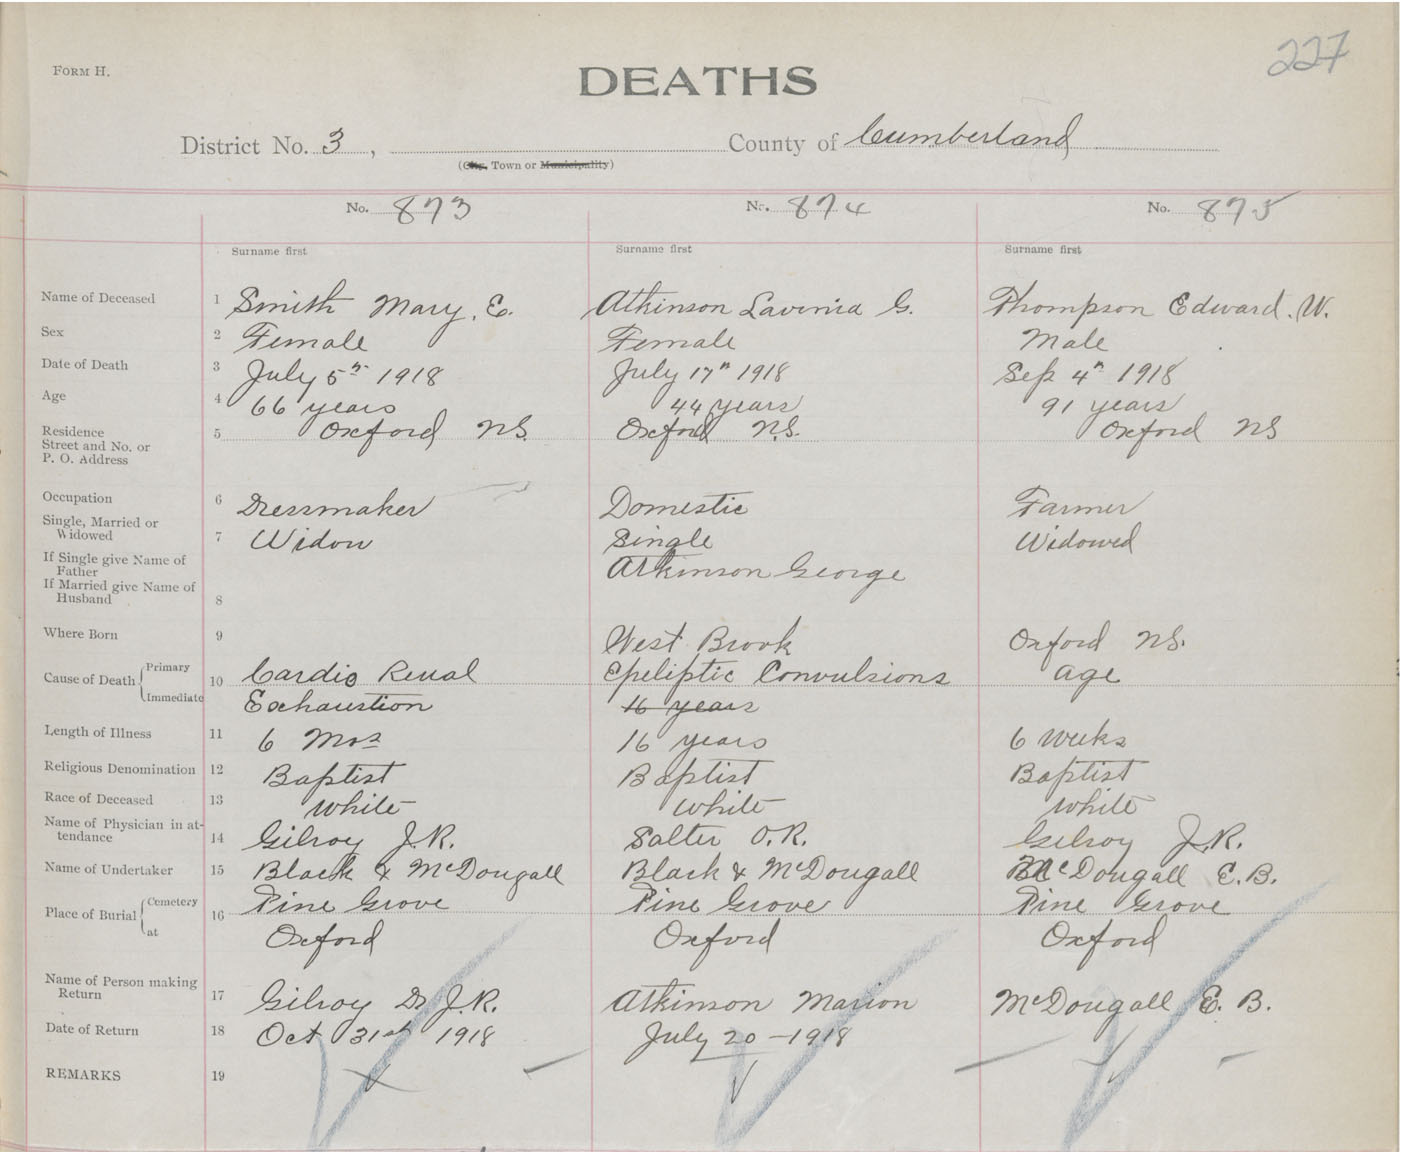 227
FORM H.
DEATHS
District No. 3, County of Cumberland
(City, Town or Municipality)
No. 873 No. 874 No. 875
Surname first Surname first Surname first
Name of Deceased 1 Smith Mary, E. Atkinson Lavinia G. Thompson Edward. W.
Sex 2 Female Female Male
Date of Death 3 July 5th 1918 July 17th 1918 Sep 4th 1918
Age 4 66 years 44 years 91 years
Residence
Street and No. or
P. O. Address 5 Oxford NS. Oxford N.S. Oxford NS
Occupation 6 Dressmaker Domestic Farmer
Single, Married or
Widowed 7 Widow Single Widowed
If Single give Name of
Father Atkinson George
If Married give Name of
Husband 8
Where Born 9 West Brook Oxford NS.
Cause of Death { Primary 10 Cardio Renal Epeliptic Convulsions age
Immediate Exhaustion 16 years
Length of Illness 11 6 Mos 16 years 6 weeks
Religious Denomination 12 Baptist Baptist Baptist
Race of Deceased 13 White White White
Name of Physician in at-
tendance 14 Gilroy J.R. Salter O.R. Gilroy J.R.
Name of Undertaker 15 Black & McDougall Black & McDougall McDougall E.B.
Place of Burial { Cemetery 16 Pine Grove Pine Grove Pine Grove
at Oxford Oxford Oxford
Name of Person making
Return 17 Gilroy Dr J.R. Atkinson Marion McDougall E. B.
Date of Return 18 Oct 31st 1918 July 20-1918
REMARKS 19